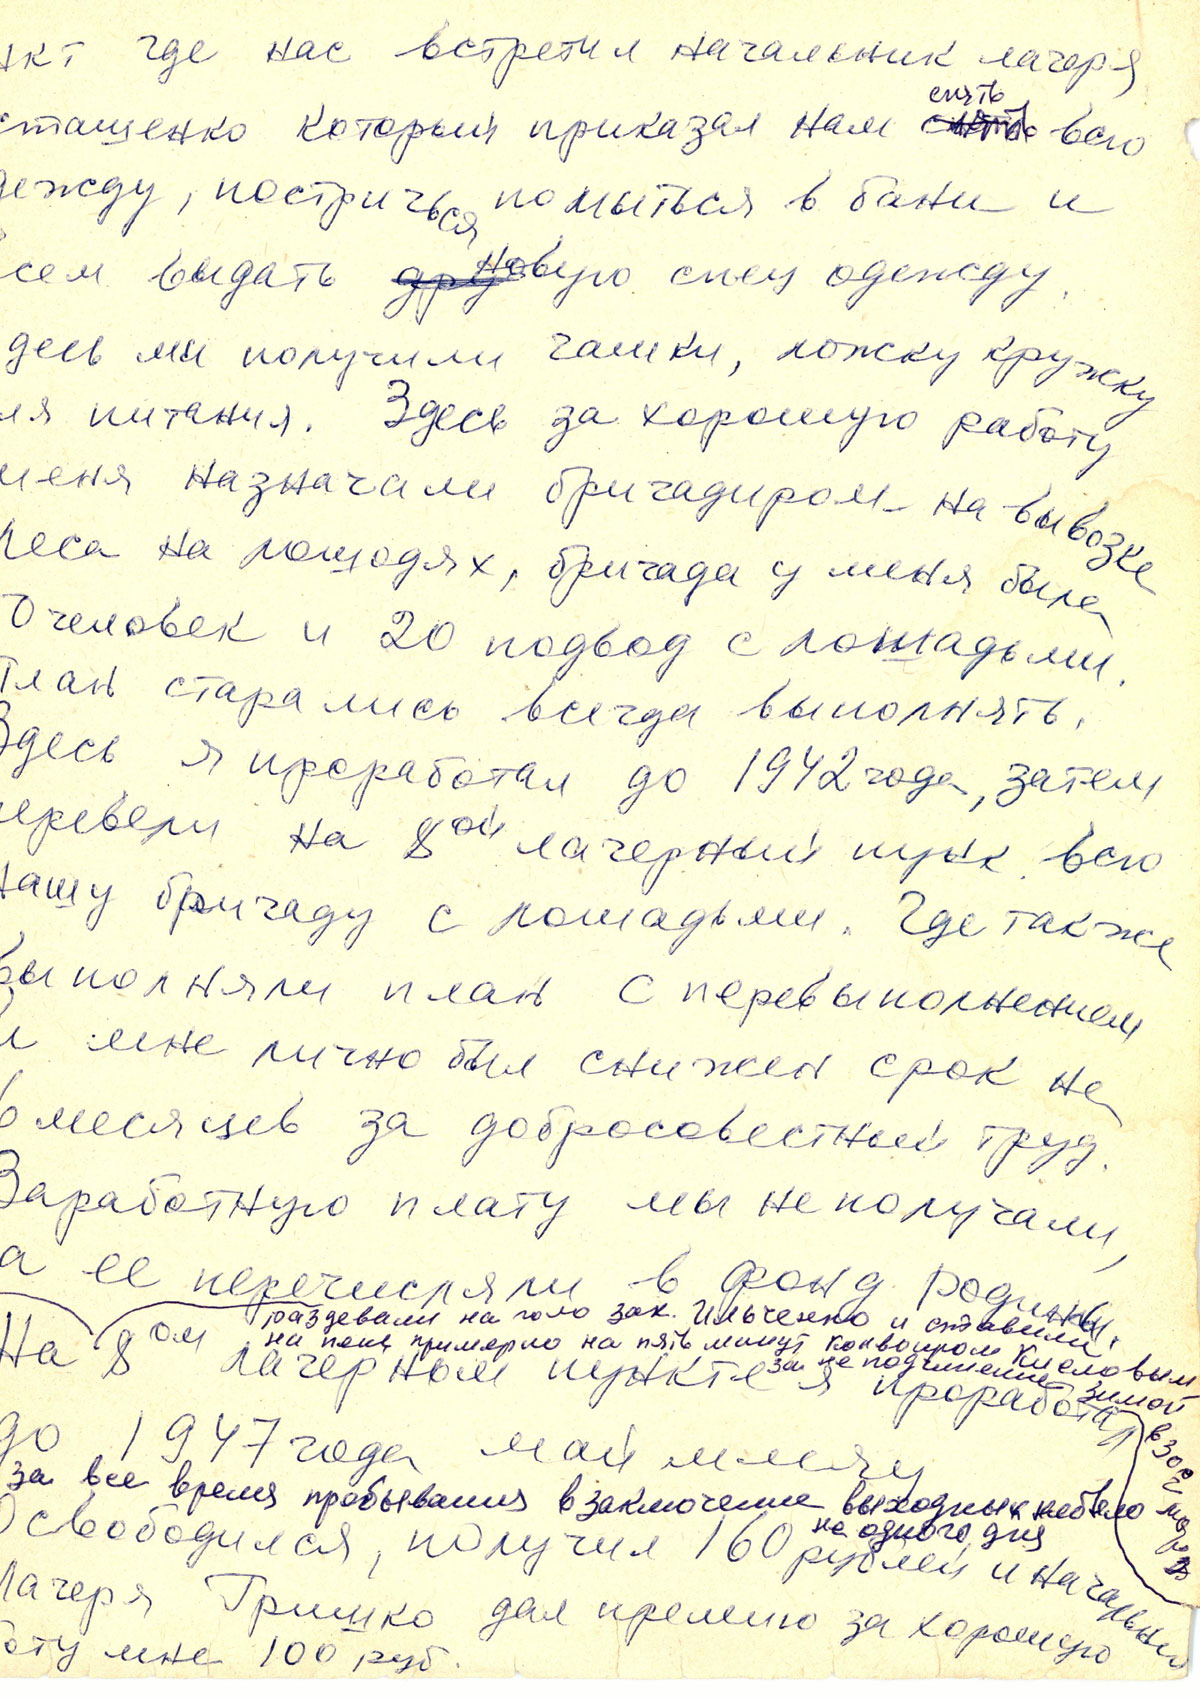 нкт где нас встретил начальник лагеря
сташенко который приказал нам снять всю
дежду, постричься помыться в бани и
сем выдать новую спец одежду.
десь мы получили чашки, ложку кружку
ля питания. Здесь за хорошую работу
меня назначали бригадиром на вывозке
леса на лошодях, бригада у меня была
0 человек и 20 подвод с лошадьми.
План старались всегда выполнять.
Здесь я проработал до 1942 года, затем
перевели на 8ой лагерный пунк всю
нашу бригаду с лошадьми. Где также
выполняли план с перевыполнением
и мне лично был снижен срок на
6 месяцев за добросовестный труд.
Заработную плату мы не получали,
а ее перечисляли в фонд родины.
раздевали на голо зак. Ильченко и ставили
на пень примерно на пять минут конвоиром Кисловым
за не подчинение зимой
в 30 гр мороз
На 8ом лагерном пункте я проработал
до 1947 года май месяц
за все время пребывания в заключение выходных небыло
не одного дня
Освободился, получил 160 рублей и начальник
Лагеря Гришко дал премию за хорошую
боту мне 100 руб.